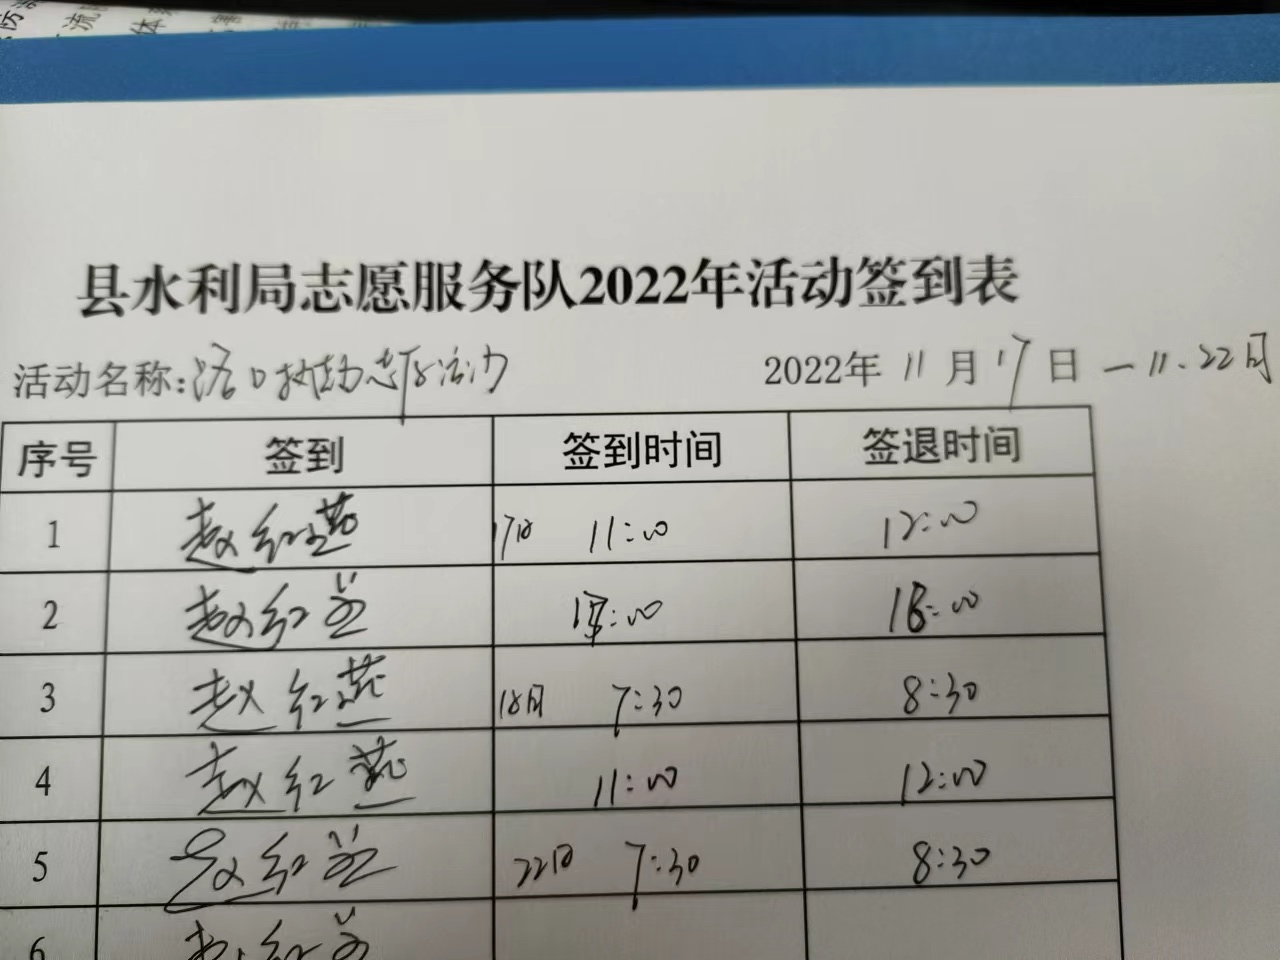 县水利局志愿服务队2022年活动签到表
活动名称:路口执勤志愿活动 2022年11月17日—11.22日
序号 签到 签到时间 签退时间
1 赵红燕 17日 11:00 12:00
2 赵红 :00 18:00
3 赵红燕 18日 7:30 8:30
4 赵红燕 11:00 12:00
5 赵红 22日 7:30 8:30
6 赵红